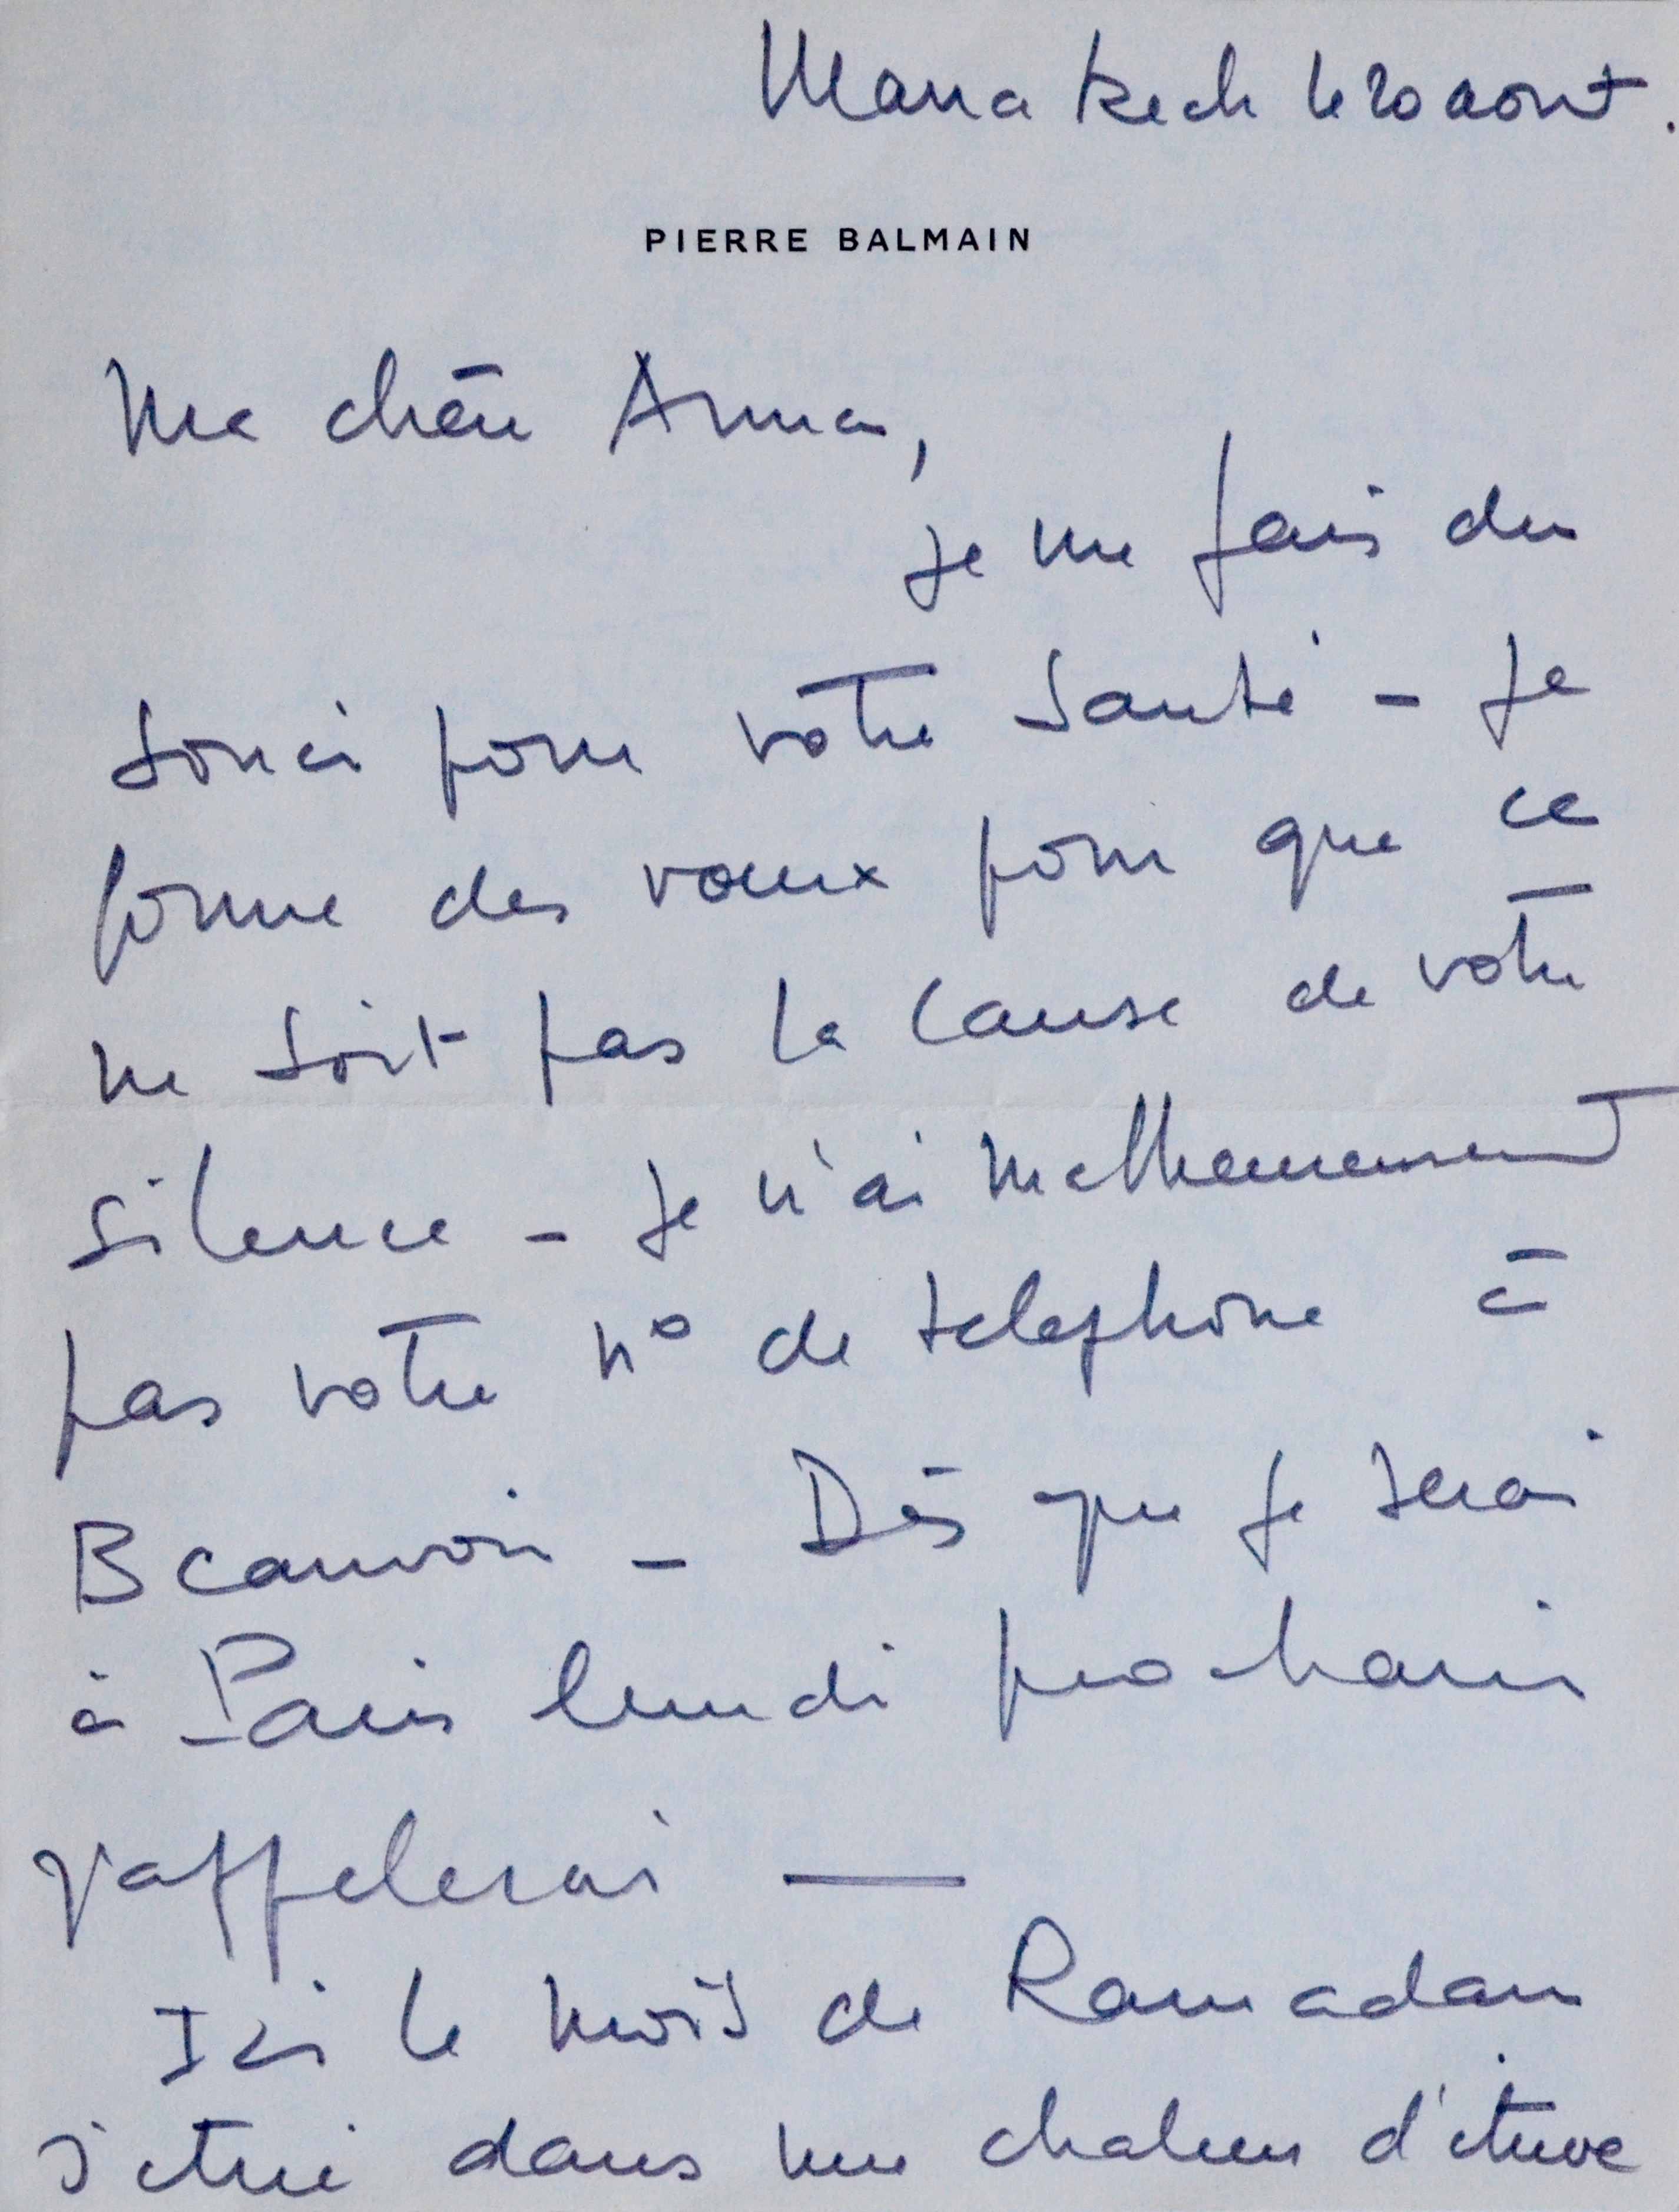 Marrakech le 20 aout.
PIERRE BALMAIN
Ma chère Anna,
je me fais du
souci pour votre santé - Je
forme des voeux pour que ce
ne soit pas la cause de votre
silence - Je n'ai malheureusement
pas votre n° de telephone à
Beauvoir - Dès que je serai
à Paris lundi prochain
j'appelerai —
Ici le mois de Ramadan
s'etire dans une chaleur d'etuve